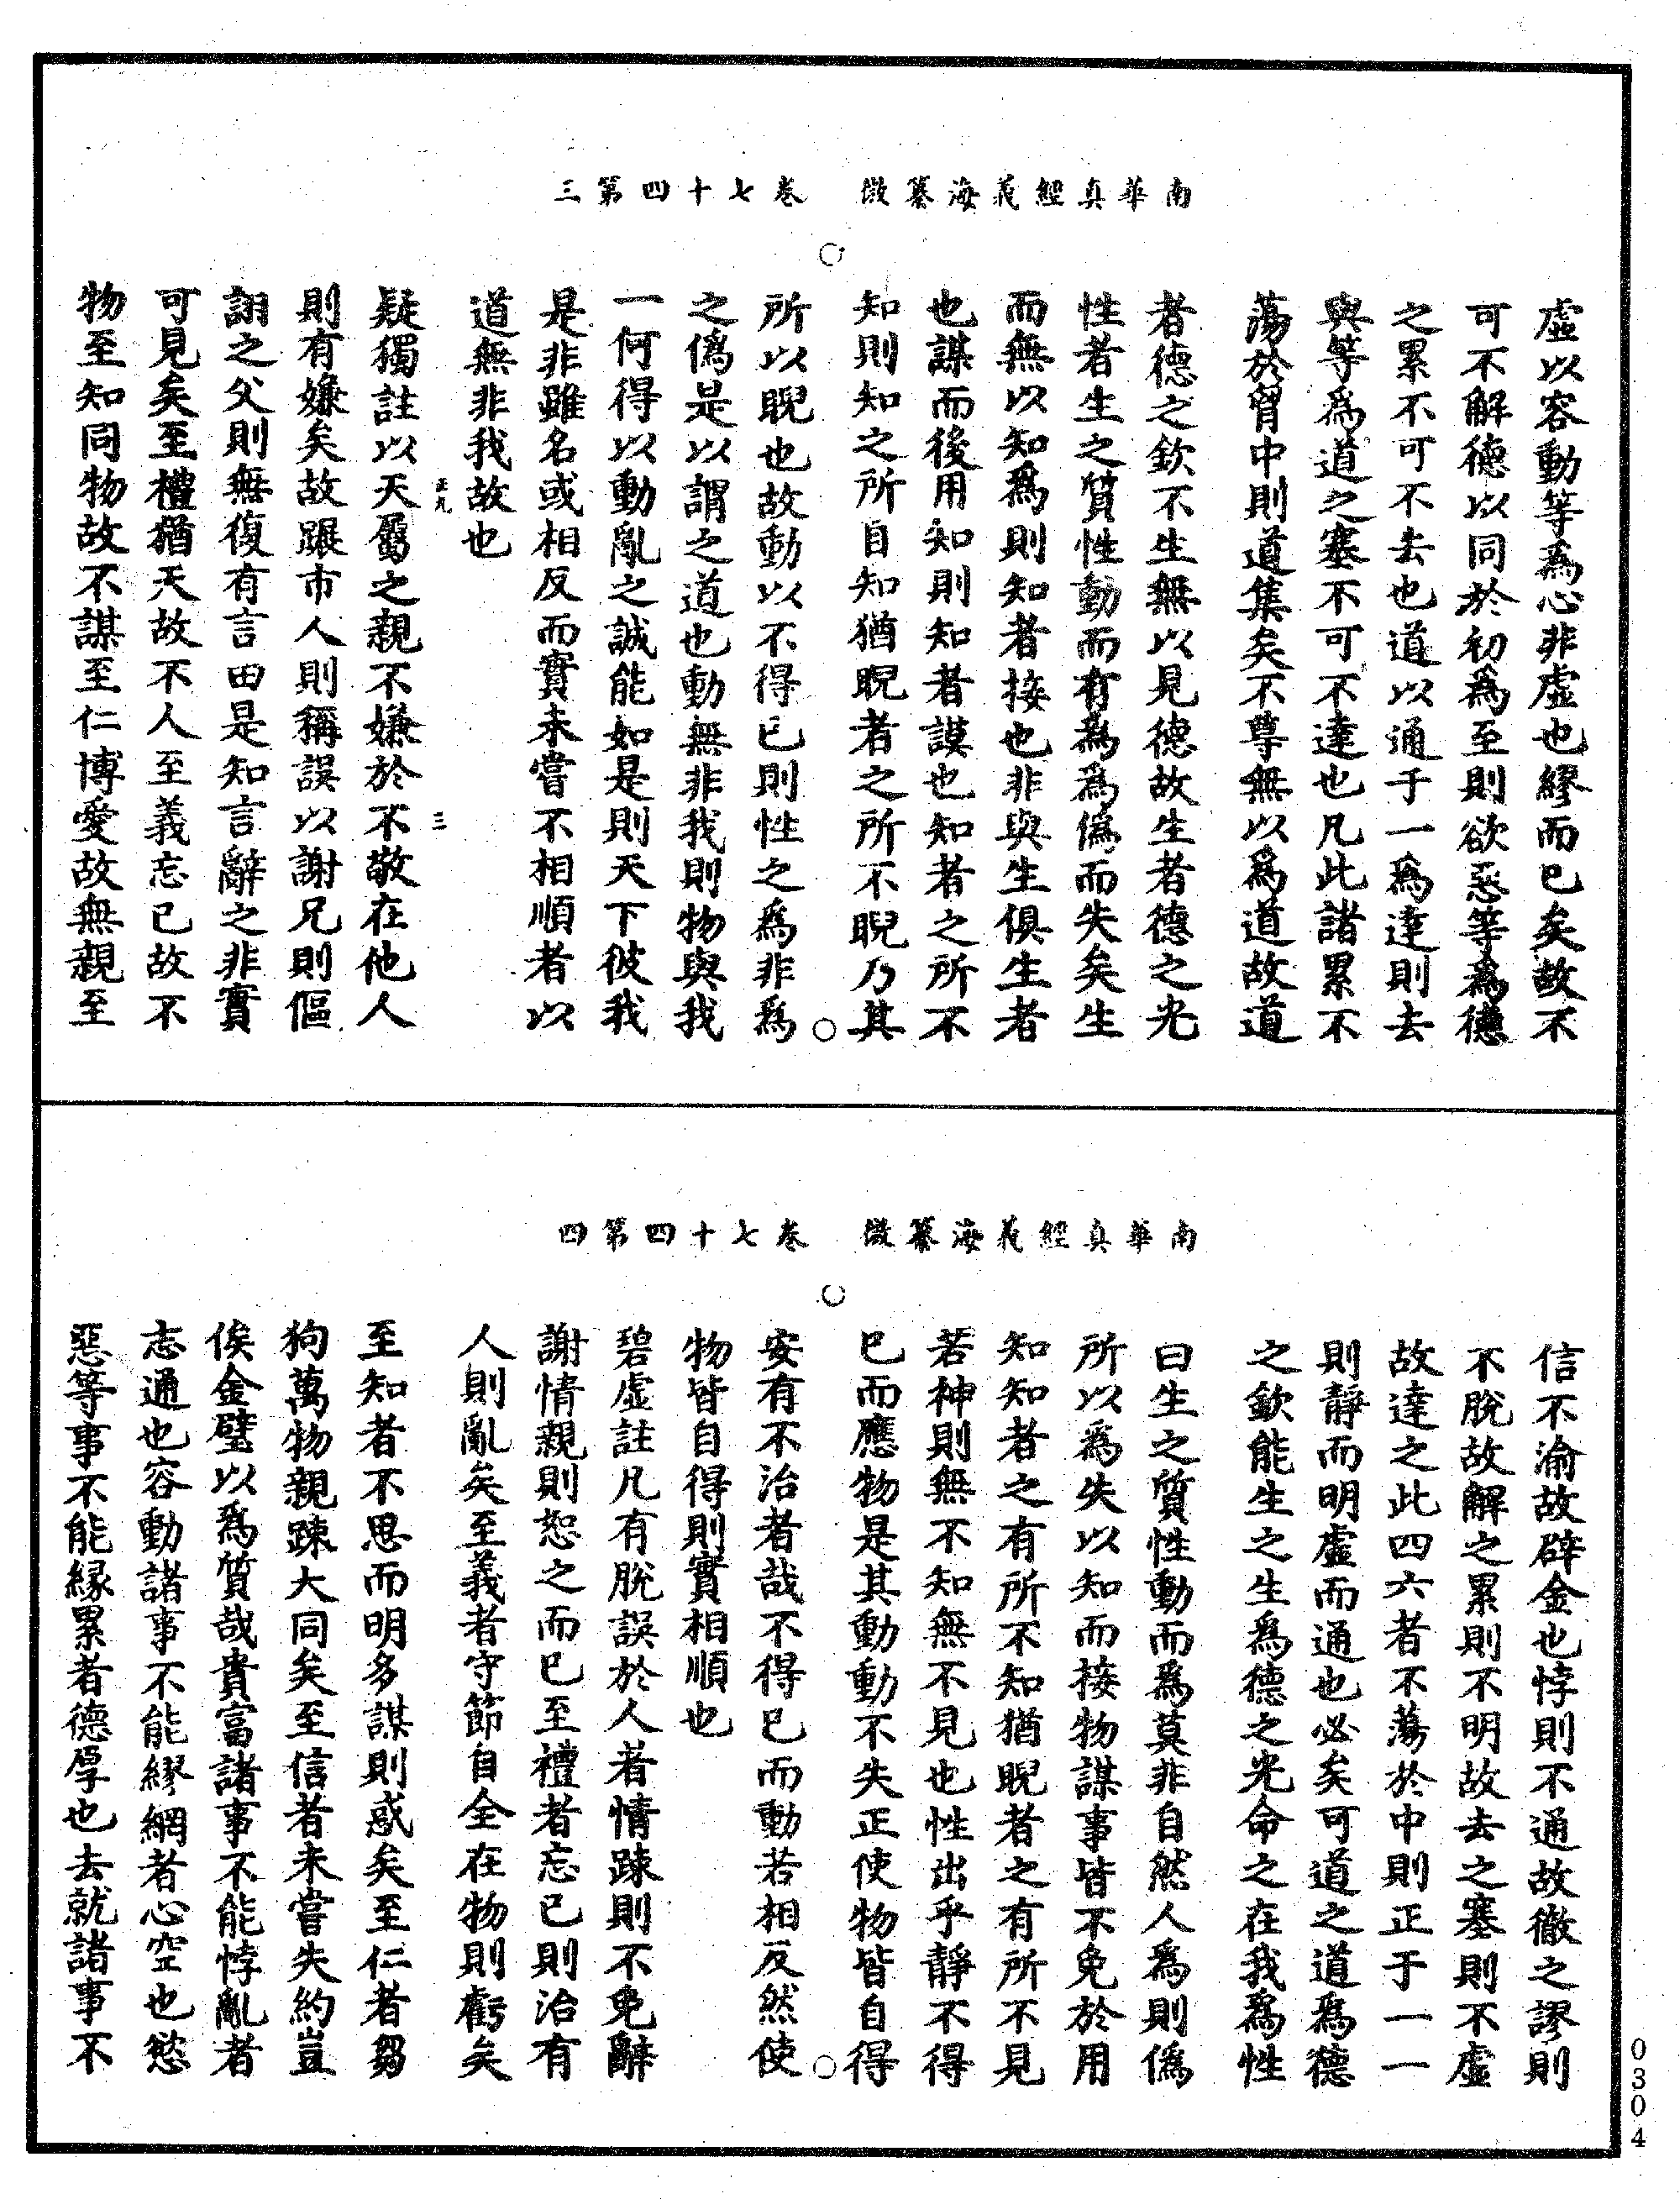 南華真經義海纂微　卷七十四第三
虛以容動等為心非虛也繆而已矣故不
可不解德以同於初為至則欲惡等為德
之累不可不去也道以通于一為達則去
與等為道之塞不可不達也凡此諸累不
蕩於胷中則道集矣不尊無以爲道故道
者德之欽不生無以見德故生者德之光
性者生之質性動而有為為偽而失矣生
而無以知爲則知者接也非與生俱生者
也謀而後用知則知者謨也知者之所不
知則知之所自知猶睨者之所不睨乃其
所以睨也故動以不得已則性之為非為
之偽是以謂之道也動無非我則物與我
一何得以動亂之誠能如是則天下彼我
是非雖名或相反而實未嘗不相順者以
道無非我故也
疑獨註以天屬之親不嫌於不敬在他人
則有嫌矣故蹍市人則稱誤以謝兄則傴
詡之父則無復有言田是知言辭之非實
可見矣至禮猶天故不人至義忘己故不
物至知同物故不謀至仁博愛故無親至
南華真經義海纂微　卷七十四第四
信不渝故辟金也悖則不通故徹之謬則
不脫故解之累則不明故去之塞則不虛
故達之此四六者不蕩於中則正于一一
則靜而明虛而通也必矣可道之道爲德
之欽能生之生爲德之光命之在我爲性
曰生之質性動而爲莫非自然人爲則偽
所以為失以知而接物謀事皆不免於用
知知者之有所不知猶睨者之有所不見
若神則無不知無不見也性出乎靜不得
已而應物是其動動不失正使物皆自得
安有不治者哉不得已而動若相反然使
物皆自得則實相順也
碧虛註凡有脫誤於人者情踈則不免辭
謝情親則恕之而已至禮者忘己則治有
人則亂矣至義者守節自全在物則虧矣
至知者不思而明多謀則惑矣至仁者芻
狗萬物親踈大同矣至信者未嘗失約豈
俟金璧以爲質哉貴富諸事不能悖亂者
志通也容動諸事不能繆綱者心空也慾
惡等事不能緣累者德厚也去就諸事不
0304